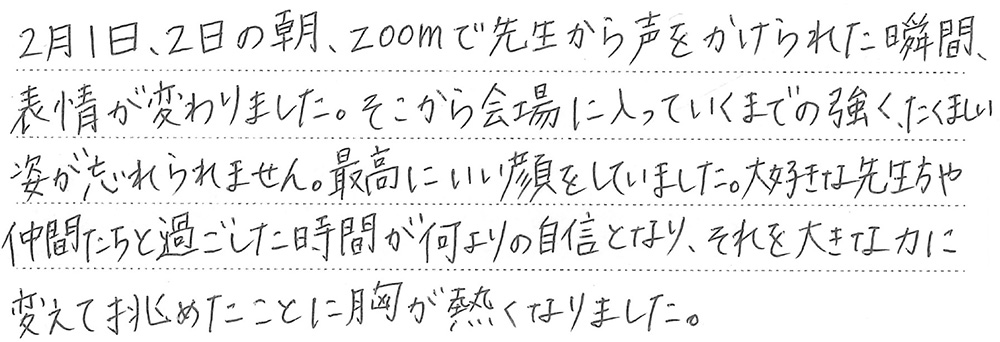 2月1日、2日の朝、zoomで先生から声をかけられた瞬間、
表情が変わりました。そこから会場に入っていくまでの強く、たくましい
姿が忘れられません。最高にいい顔をしていました。大好きな先生方や
仲間たちと過ごした時間が何よりの自信となり、それを大きな力に
変えて挑めたことに胸が熱くなりました。